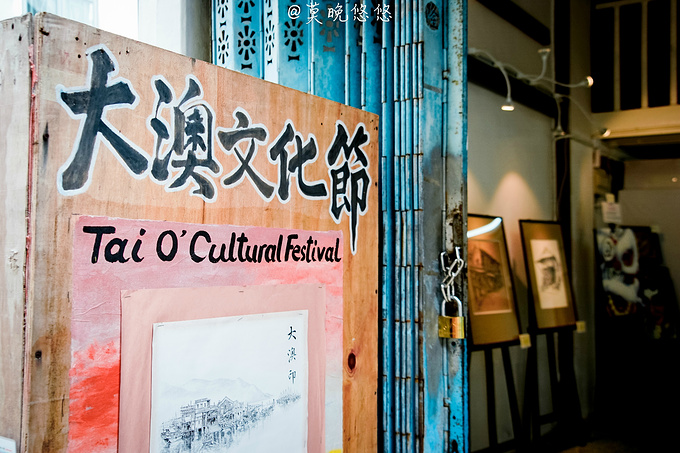 @莫晚悠悠
大澳文化節
Tai O' Cultural Festival
大澳印